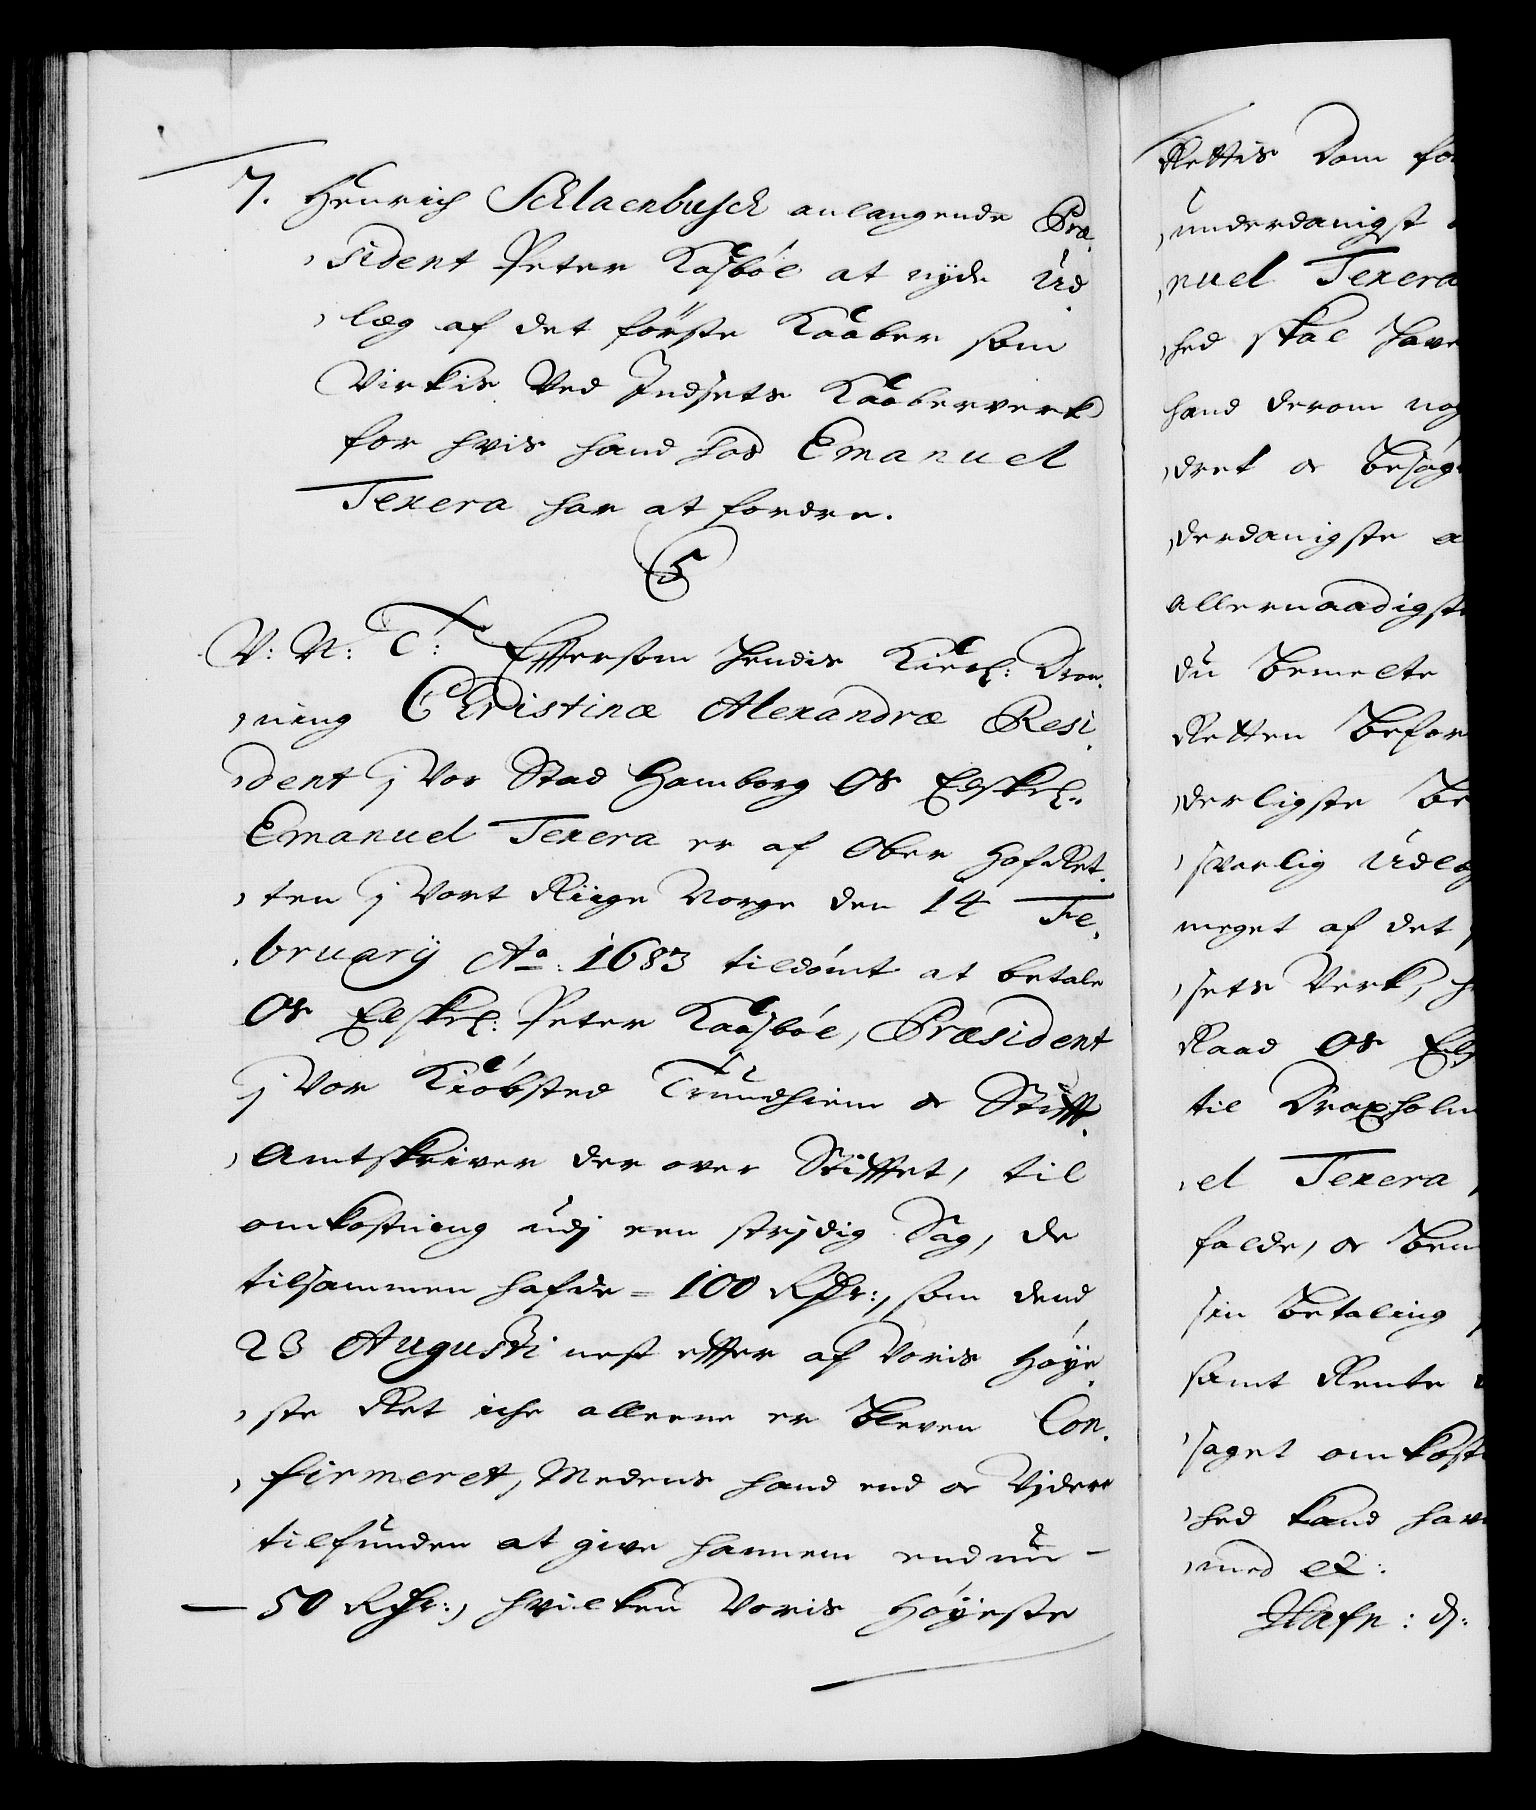 7. Henrich Schlaenbusch anlangende Præ,
,sident Peter Kaasbøe at nyde Ud,
,læg af det første Kaaber som
Virkis Ved Indsets Kaaberverk
for hvis hand hos Emanuel
Texera har at fordre.
5
V: N: C: T Effersom hendis Kierl: Dron,
,ning Christinæ Alexandræ Resi,
,dent j Vor Stad Hamborg Os Elskel:
Emanuel Texera er af Ober HofRet,
,ten j Vort Riige Norge den 14 Fe,
,bruarij Ao: 1683 tildømt at betale
Os Elskel: Peter Kaasbøe, Præsident
j Vor Kiøbsted Trundhiem oc Stifft,
,Amtskriver der over Stifftet, til
omkostning udj een strjdig Sag, de
tilsammen hafde = 100 Rdr:, som dend
23 Augusti nest effter af Voris Høye,
,ste Ret iche alleene er bleven Con,
,firmeret, Medens hand end oc Vjdere
tilfunden at give hannem endnu -
50 Rdr:, hvilken Voris Høyeste
Rettis Dom
underdanigst
,nuel Texera
,hed skal have
hand derom
,dret oc
,derdanigste
allernaadigst
du bemelte
Retten
,derligste
,sverlig
meget af det
,sets Verk,
Raad Os
til Draxholm
,el Texera
falde, oc
sin betaling
samt Rente
,saget
,hed kand
,med etc:
Hafn: d: